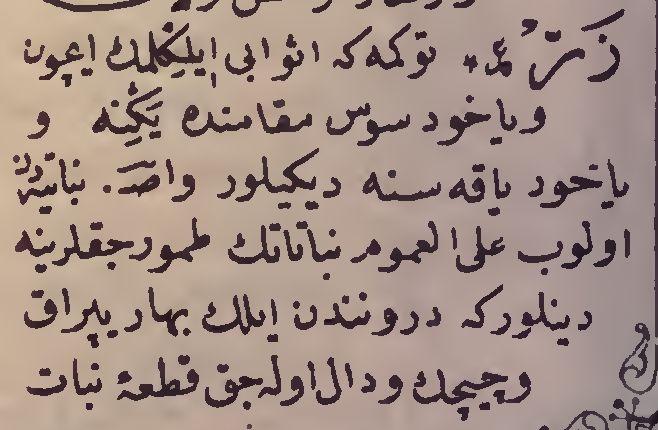 زِرّ ع. توكمه كه اثوابى ايليكلمك ايچون
وياخود سوس مقامنده يَكِنه و
ياخود ياقه سنه ديكيلور واصـ. نباتيّه‌دن
اولوب على العموم نباتاتك طمورجقلرينه
دينلوركه دروننده‌ن ايلك بهار يپراق
وچيچك ودال اوله جق قطعهٔ نبات